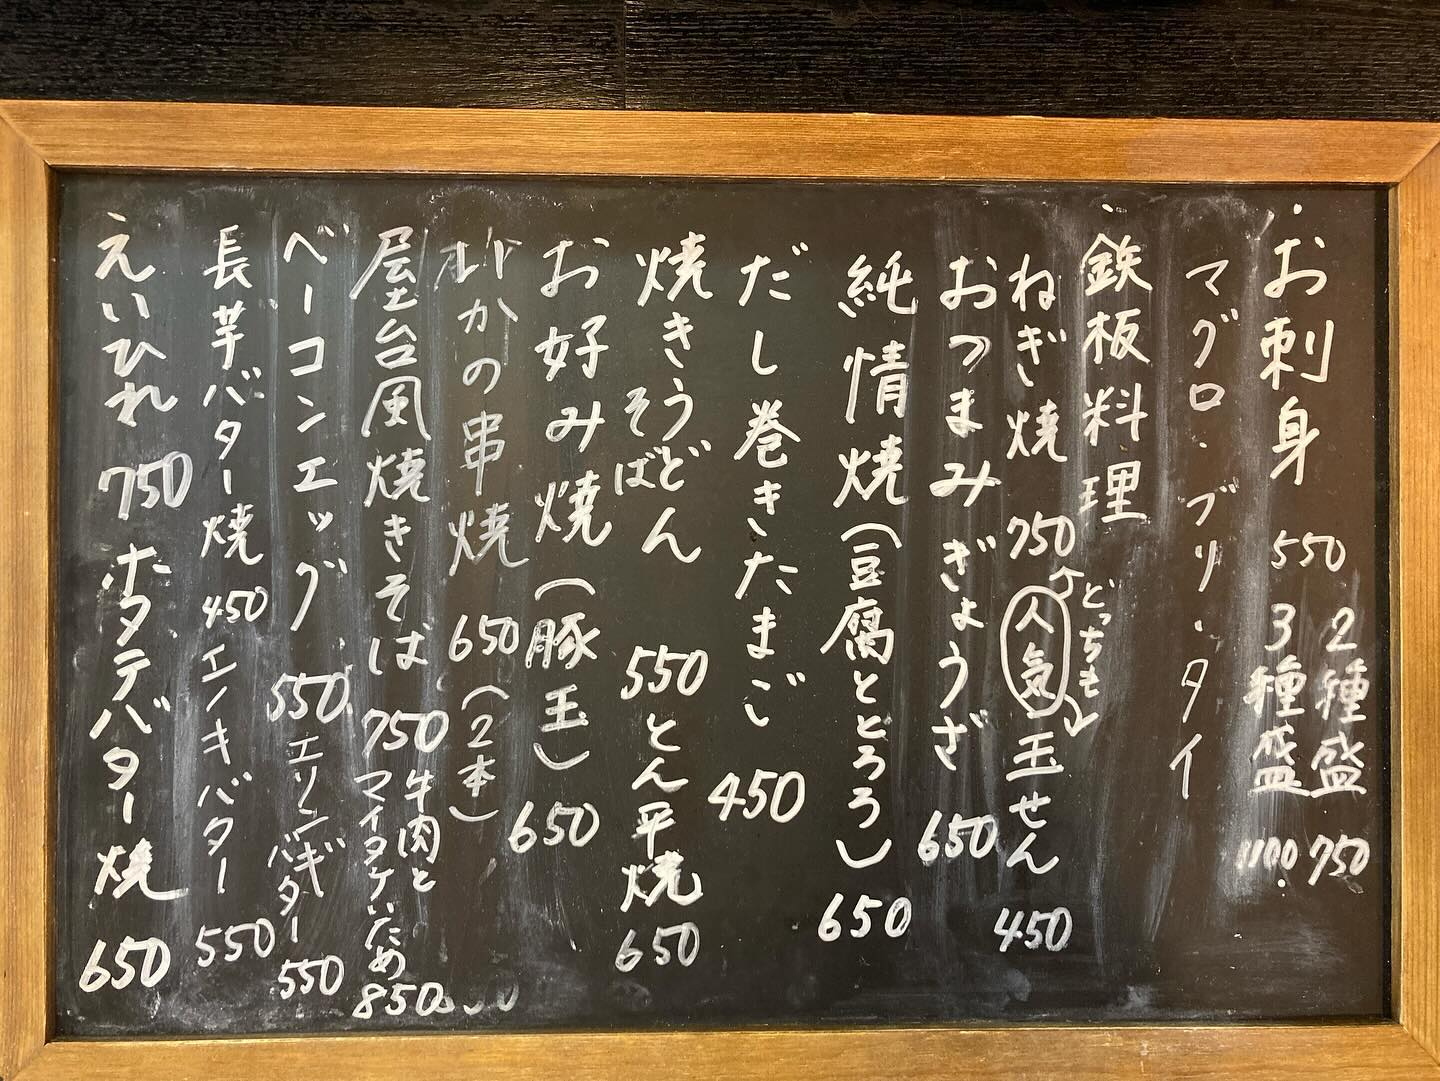 ・お刺身 550 2種盛 750
3種盛 1100.
マグロ・ブリ・タイ
・鉄板料理
ねぎ焼 750 人気 どっちも 玉せん 450
おつまみぎょうざ 650
純情焼(豆腐ととろろ) 650
だし巻きたまご 450
焼きうどん そば 550 とん平焼 650
お好み焼(豚玉) 650
いかの串焼 650(2本)
屋台風焼きそば 750 牛肉とマイタケいため 850
ベーコンエッグ 550 エリンギバター 550
長芋バター焼 450 エノキバター 550
・えいひれ 750 ホタテバター焼 650